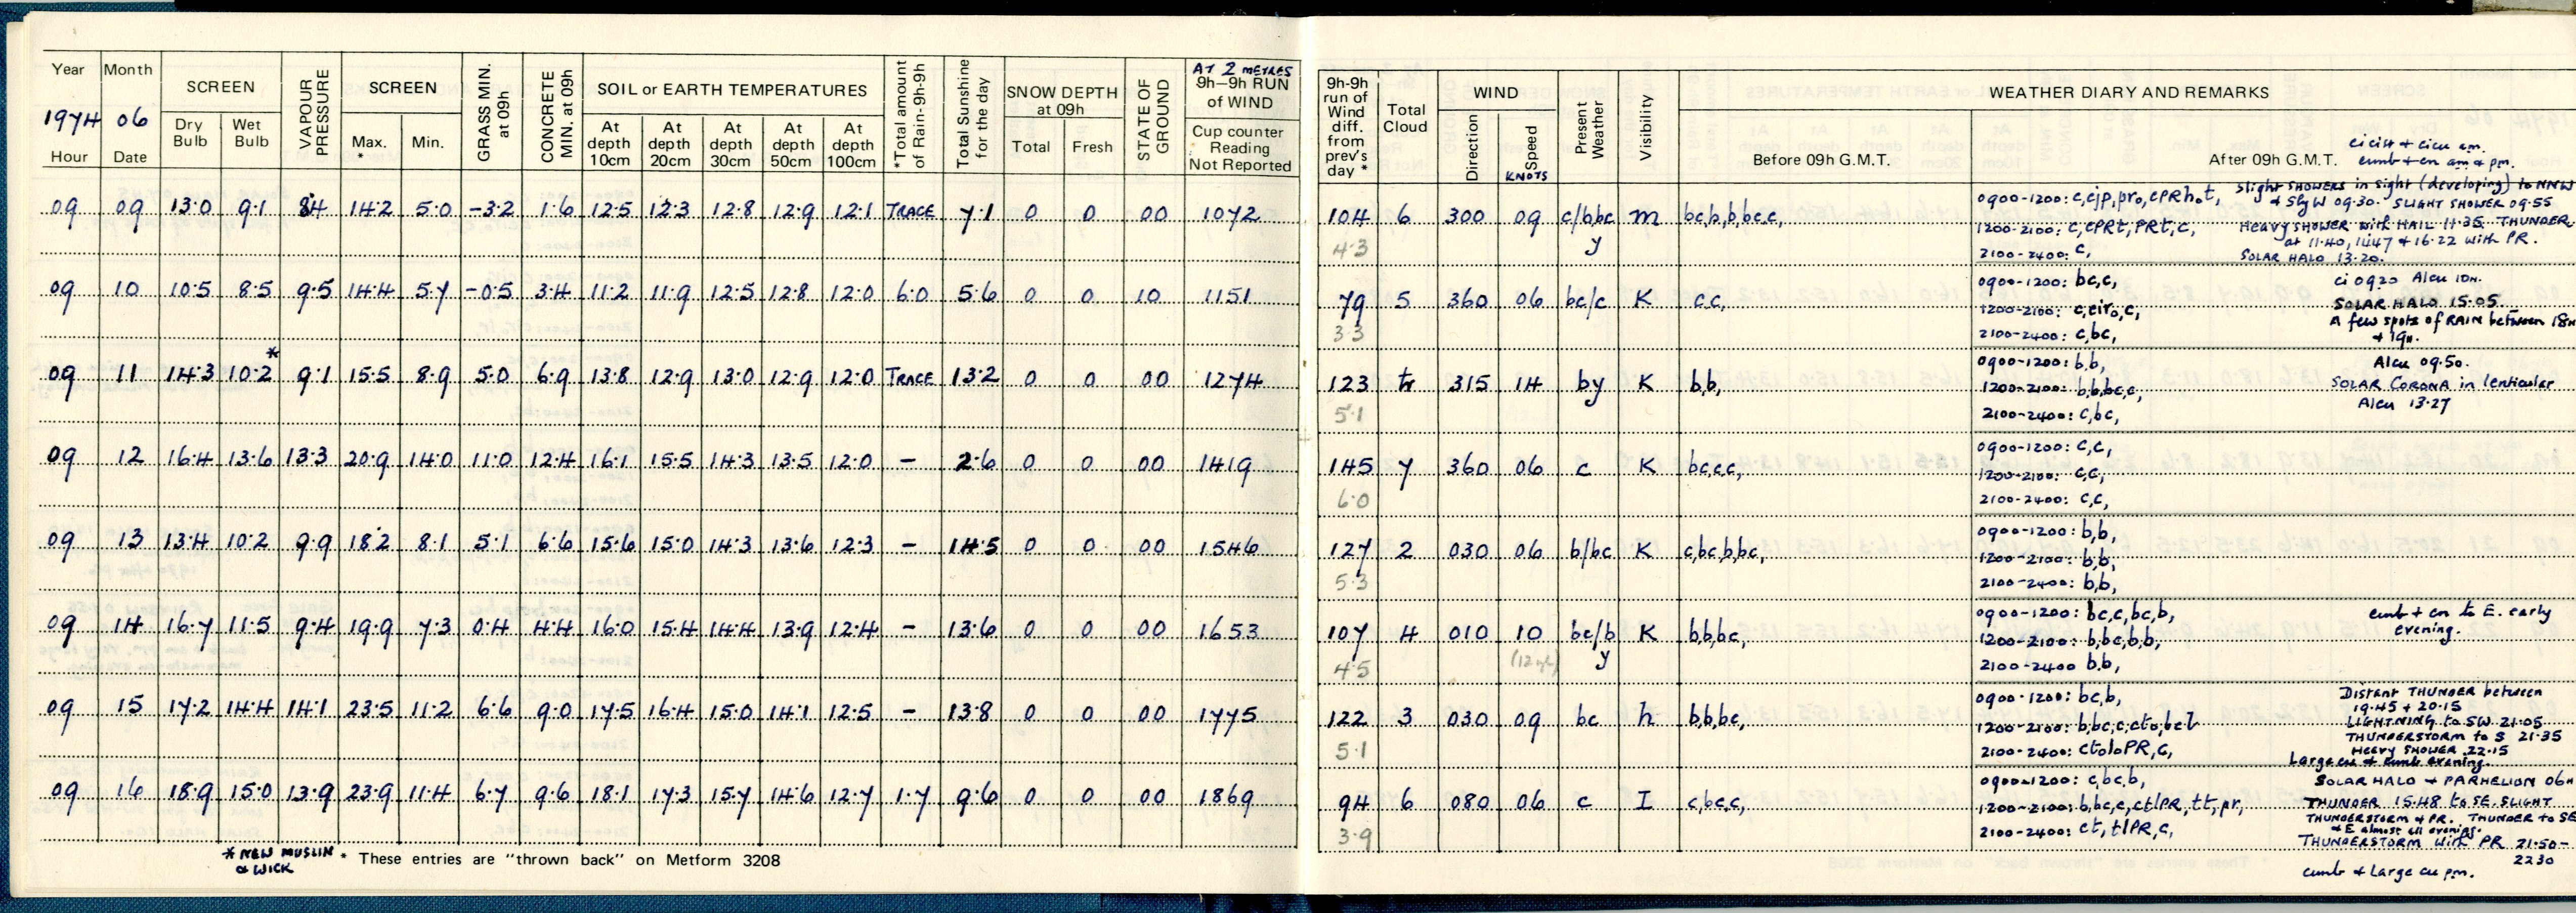 Year Month SCREEN VAPOUR PRESSURE SCREEN GRASS MIN. at 09h CONCRETE MIN. at 09h SOIL or EARTH TEMPERATURES *Total amount of Rain-9h-9h Total Sunshine for the day SNOW DEPTH at 09h STATE OF GROUND AT 2 METRES 9h-9h RUN of WIND
1974 06 Dry Bulb Wet Bulb Max. * Min. At depth 10cm At depth 20cm At depth 30cm At depth 50cm At depth 100cm Total Fresh Cup counter Reading Not Reported
Hour Date
09 09 13.0 9.1 8.4 14.2 5.0 -3.2 1.6 12.5 12.3 12.8 12.9 12.1 TRACE 7.1 0 0 00 1072
09 10 10.5 8.5 9.5 14.4 5.7 -0.5 3.4 11.2 11.9 12.5 12.8 12.0 6.0 5.6 0 0 10 1151
*
09 11 14.3 10.2 9.1 15.5 8.9 5.0 6.9 13.8 12.9 13.0 12.9 12.0 TRACE 13.2 0 0 00 1274
09 12 16.4 13.6 13.3 20.9 14.0 11.0 12.4 16.1 15.5 14.3 13.5 12.0 - 2.6 0 0 00 1419
09 13 13.4 10.2 9.9 18.2 8.1 5.1 6.6 15.6 15.0 14.3 13.6 12.3 - 14.5 0 0 00 1546
09 14 16.7 11.5 9.4 19.9 7.3 0.4 4.4 16.0 15.4 14.4 13.9 12.4 - 13.6 0 0 00 1653
09 15 17.2 14.4 14.1 23.5 11.2 6.6 9.0 17.5 16.4 15.0 14.1 12.5 - 13.8 0 0 00 1775
09 16 18.9 15.0 13.9 23.9 11.4 6.7 9.6 18.1 17.3 15.7 14.6 12.7 1.7 9.6 0 0 00 1869
* NEW MUSLIN & WICK
* These entries are "thrown back" on Metform 3208
9h-9h run of Wind diff. from prev's day * Total Cloud WIND Direction Speed KNOTS Present Weather Visibility WEATHER DIARY AND REMARKS
Before 09h G.M.T. After 09h G.M.T.
cicist + cicu am.
cumb + cn am & pm.
104 6 300 09 c/bbc m bc,b,b,bc,c,
4.3 y
0900-1200: c,cjp,pro,cPRhot,
1200-2100: c,cPRt,PRt,c,
2100-2400: c,
Slight SHOWERS in sight (developing) to NNW
SLIGHT SHOWER 09.55
HEAVY SHOWER with HAIL 11.35 THUNDER
at 11.40, 11.47 + 16.22 with PR.
SOLAR HALO 13.20.
79 5 360 06 bc/c K c,c,
3.3
0900-1200: bc,c,
1200-2100: c,ciro,c,
2100-2400: c,bc,
ci 0920 Alcu 10H.
SOLAR HALO 15.05.
A few spots of RAIN between 18H
+ 19H.
123 tr 315 14 by K b,b,
5.1
0900-1200: b,b,
1200-2100: b,b,bc,c,
2100-2400: c,bc,
Alcu 09.50.
SOLAR CORONA in lenticular
Alcu 13.27
145 7 360 06 c K bc,c,c,
6.0
0900-1200: c,c,
1200-2100: c,c,
2100-2400: c,c,
127 2 030 06 b/bc K c,bc,b,bc,
5.3
0900-1200: b,b,
1200-2100: b,b,
2100-2400: b,b,
107 4 010 10 bc/b K b,b,bc,
4.5 y
0900-1200: bc,c,bc,b,
1200-2100: b,bc,b,b,
2100-2400 b,b,
cumb + cn to E. early
evening.
122 3 030 09 bc h b,b,bc,
5.1
0900-1200: bc,b,
1200-2100: b,bc,c,cto,bcl
2100-2400: ctoloPR,c,
Distant THUNDER between
19.45 + 20.15
LIGHTNING to SW 21.05
THUNDERSTORM to S 21.35
HEAVY SHOWER 22.15
Large cu + cumb evening.
94 6 080 06 c I c,bc,c,
3.9
0900-1200: c,bc,b,
1200-2100: b,bc,c,ctlPR,tt,pr,
2100-2400: ct,tlPR,c,
SOLAR HALO + PARHELION 06H
THUNDER 15.48 to SE. SLIGHT
THUNDERSTORM & PR. THUNDER to SE
& E almost all evening.
THUNDERSTORM with PR 21.50-
2230
cumb + Large cu pm.